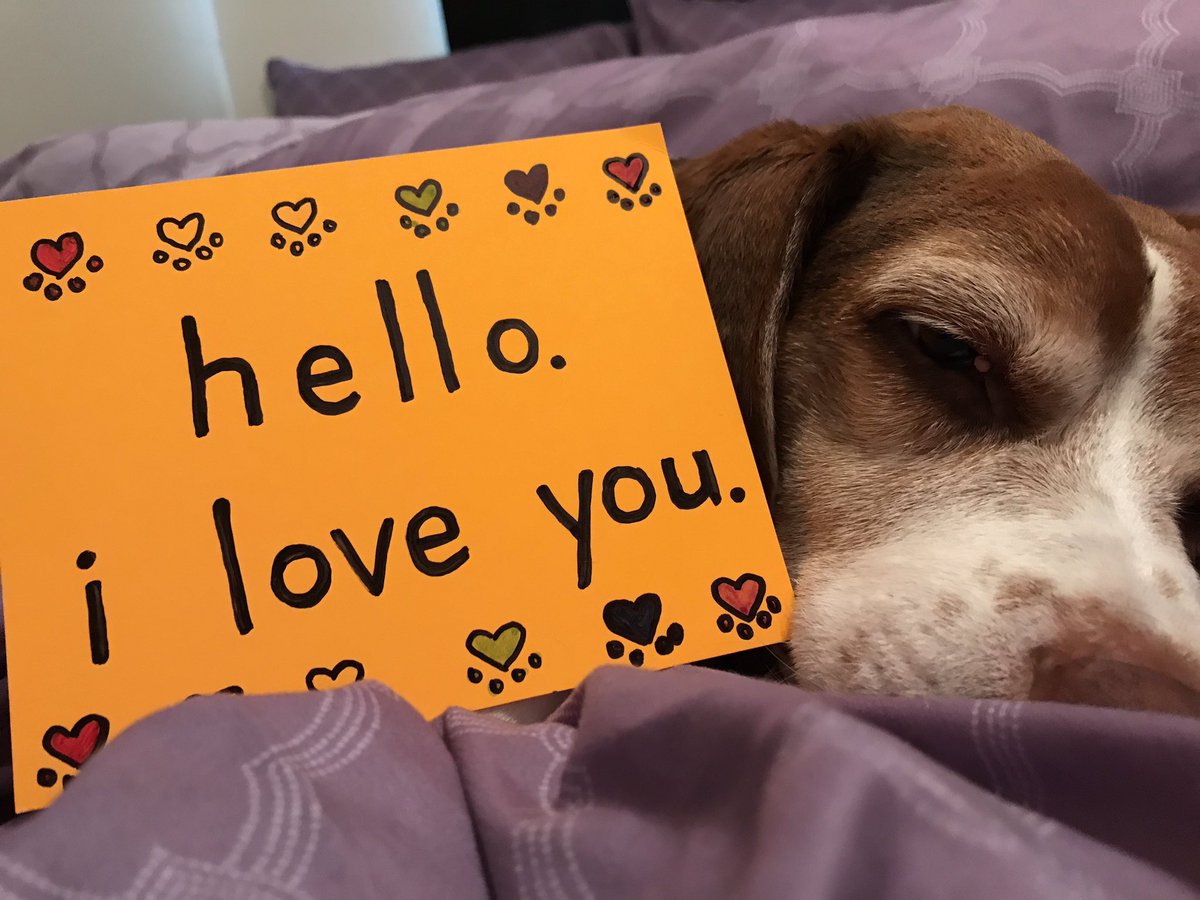 hello.
i love you.